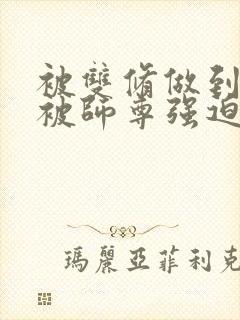 被雙脩做到
被師尊强迫
瑪麗亞菲利克